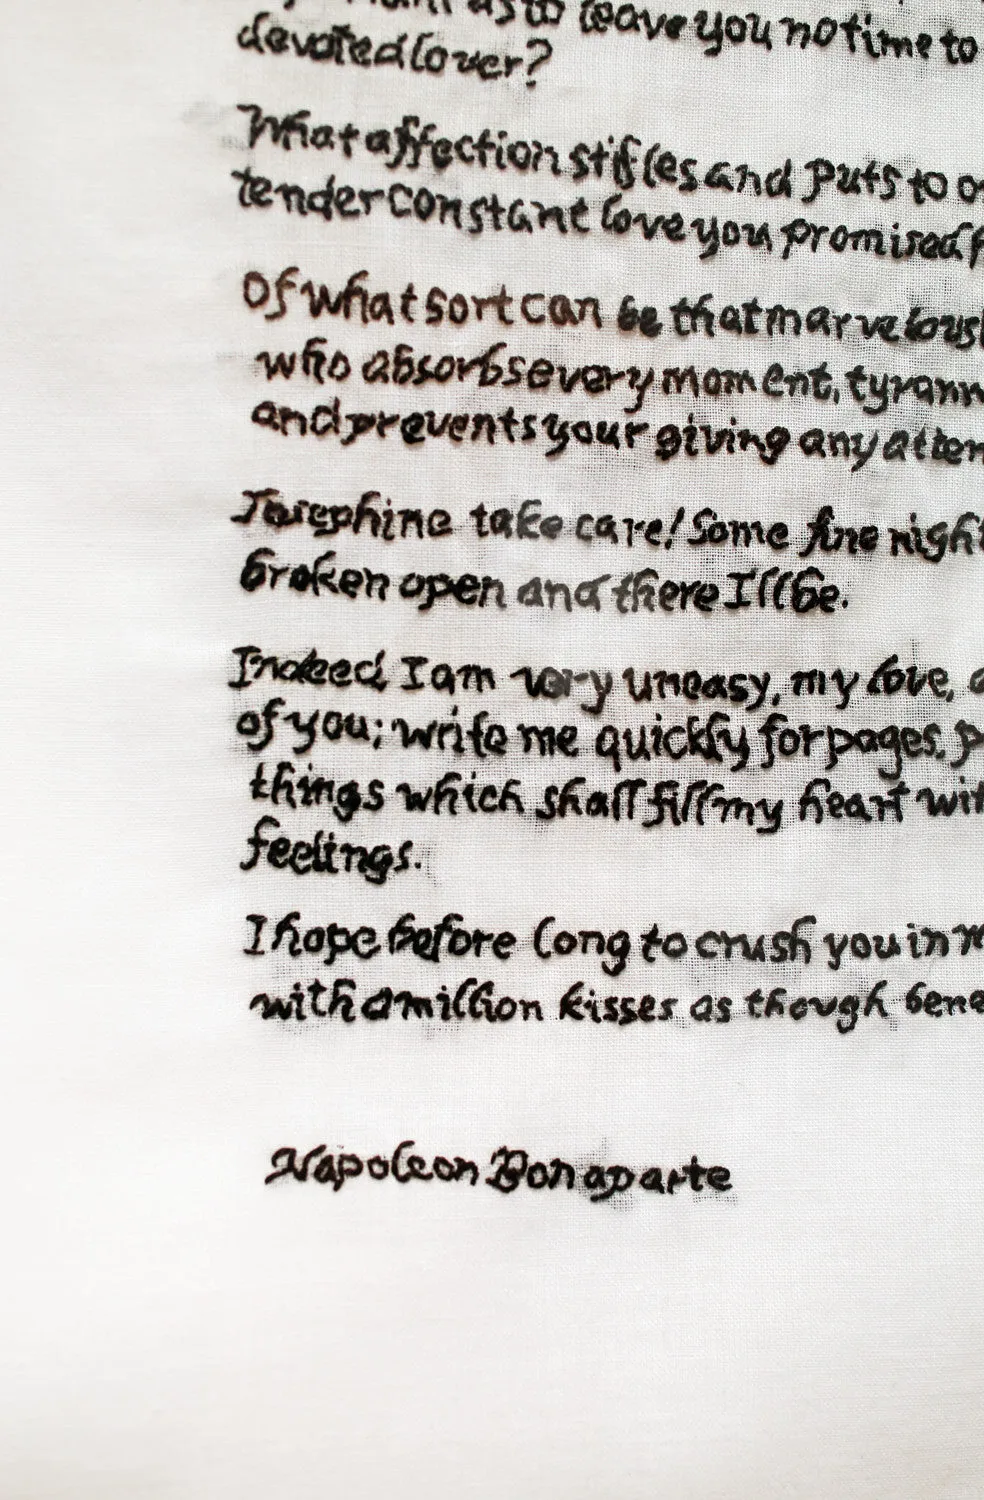 as to leave you no time to
devoted lover?
What affection stifles and puts to o
tender constant love you promised
Of what sort can be that marvelous
who absorbs every moment, tyrann
and prevents your giving any atten
Josephine take care! Some fine night
broken open and there I'll be.
Indeed I am very uneasy, my love,
of you; write me quickly for pages, p
things which shall fill my heart wit
feelings.
I hope before long to crush you in m
with a million kisses as though bene
Napoleon Bonaparte